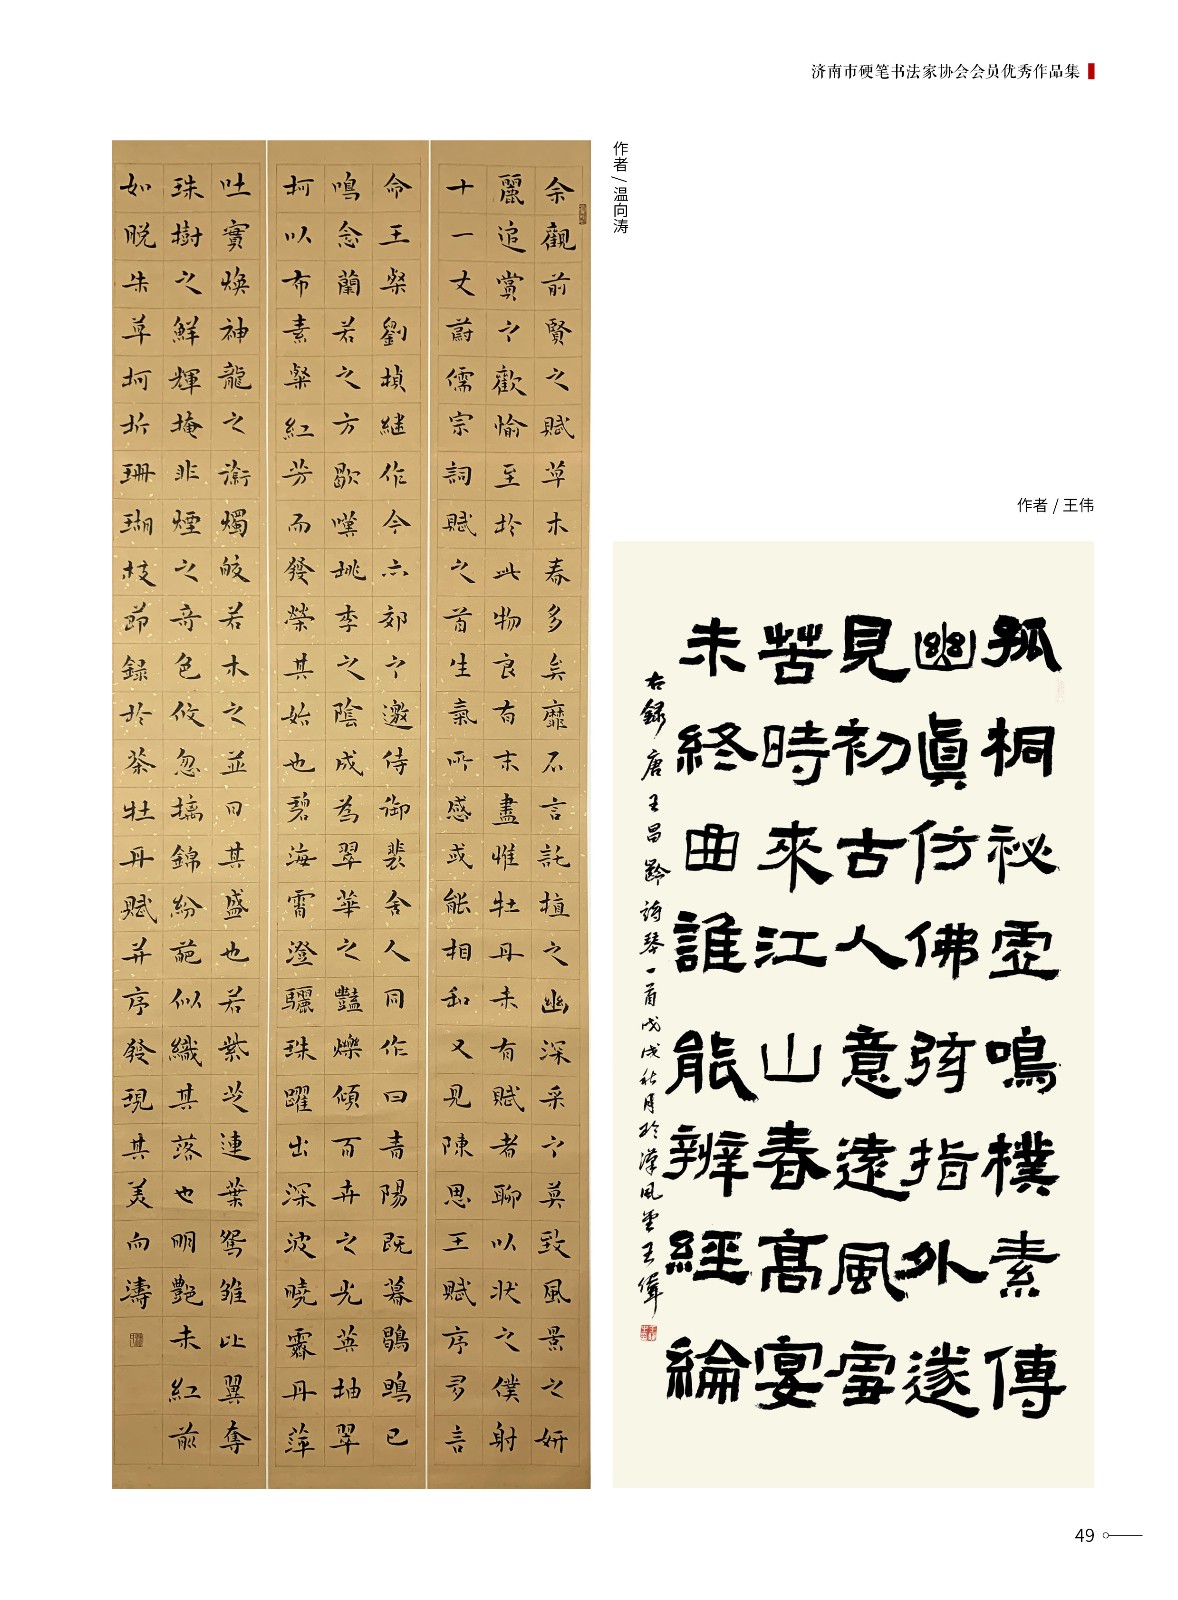 济南市硬笔书法家协会会员优秀作品集
作者/温向涛
余觀前賢之賦草木春多矣靡不言託植之幽深采之莫致風景之妍
麗追賞之歡愉至於此物良有末盡惟牡丹未有賦者聊以狀之僕射
十一丈蔚儒宗詞賦之首生氣所感或能相和又見陳思王賦序多言
命王粲劉楨繼作今亦郊之邀侍御裴舍人同作曰青陽既暮鶗鴂已
鳴念蘭若之方歇嘆桃李之陰成為翠華之豔爍傾百卉之光英抽翠
柯以布素粲紅芳而發榮其始也碧海霄澄驪珠躍出深波曉霽丹萍
吐實煥神龍之銜燭皎若木之並日其盛也若紫芝連葉鴛雛比翼奪
珠樹之鮮輝掩非煙之奇色倏忽摛錦紛葩似織其落也明艷未紅前
如脫朱草柯折珊瑚枝節録於茶牡丹賦并序發現其美向濤
作者 / 王伟
孤桐祕虛鳴樸素傳
幽眞仿佛弦指外遂
見初古人意遠風雪
苦時來江山春高宴
未終曲誰能辨經綸
右録唐王昌齡詩琴一首戊戌秋月於漢風堂王偉
49